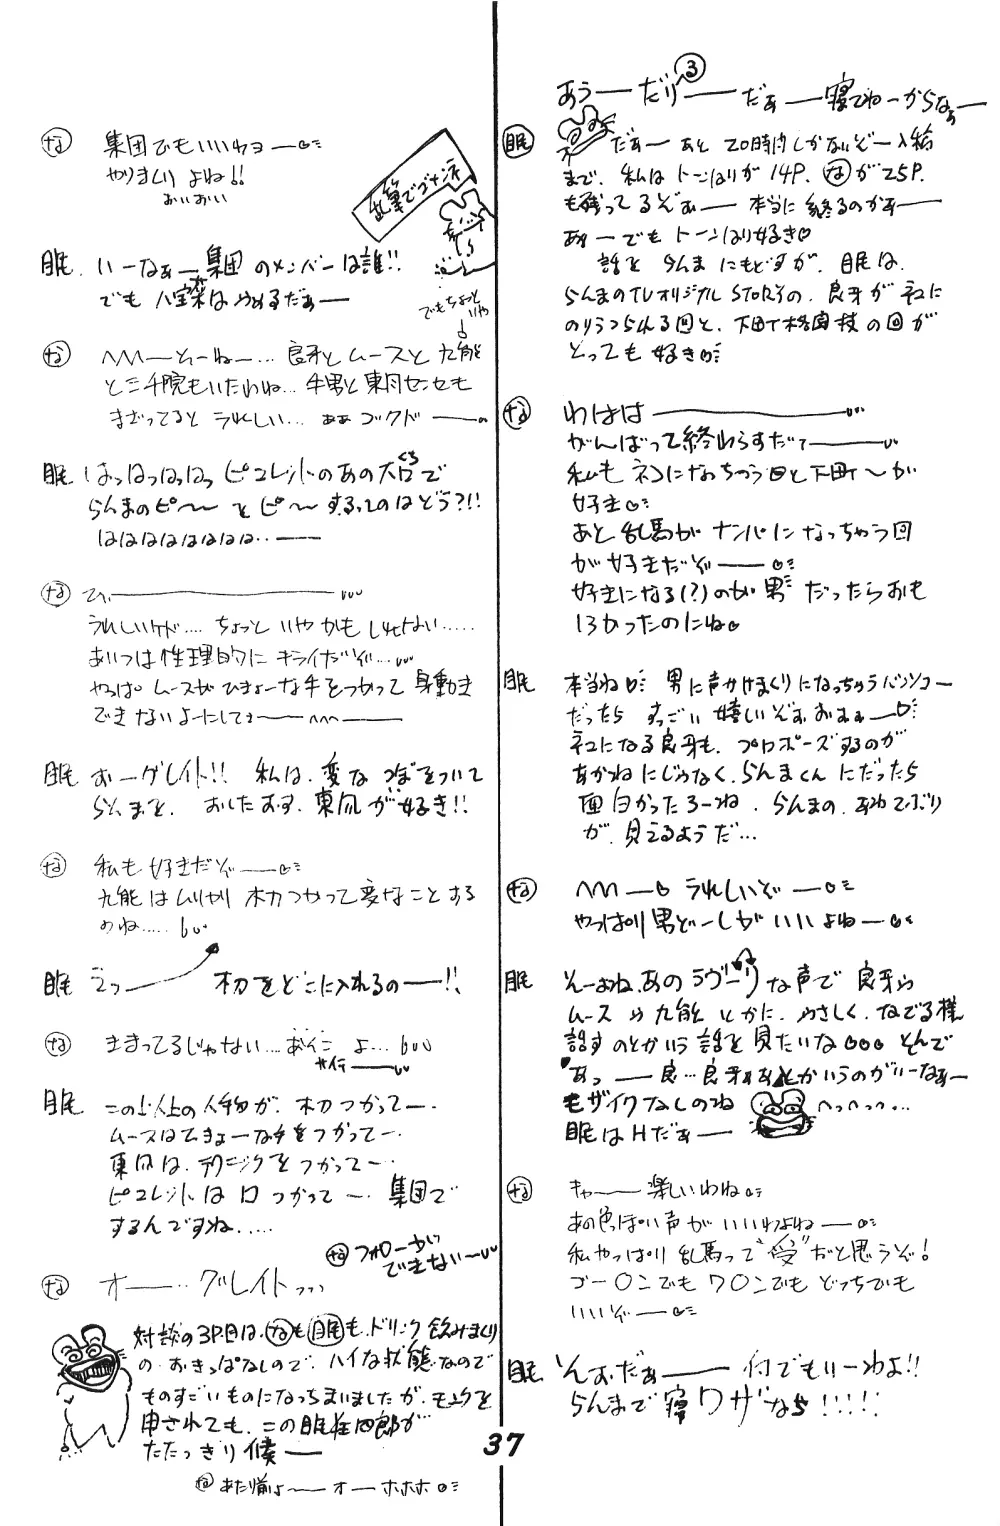 あうーだりーだぁー寝てねーからなぁー
③
眠 だぁーあと20時間しかないぞー入稿
まで、私はトーンはりが14P、なが25P
も残ってるぞぉー本当に終るのかぁー
あぁーでもトーンはり好き♡
話をらんまにもどすが、眠は、
らんまのTVオリジナルSTORYの、良牙がネコに
のりうつられる回と、下町格闘技の回が
とっても好き♡
な わはは――
がんばって終わらすだァ――
私もネコになっちゃう回と下町〜が
好き♡
あと乱馬がナンパになっちゃう回
が好きだぞー♡
好きになる(?)のが男だったらおも
しろかったのにね♡
眠 本当ね♡ 男に声かけまくりになっちゃうバンソコー
だったらすっごい嬉しいぞぉおぉぉー♡
ネコになる良牙も、プロポーズするのが
あかねにじゃなく、らんまくんにだったら
面白かったろーね、らんまの、あわてぶり
が、見えるようだ…
な へへへー♡ うれしいぞー♡
やっぱり男どーしがいいよねー♡
眠 そーよね、あのラヴリーな声で良牙や
ムースや九能とかに、やさしく、なでる様
話すのとかいう話を見たいな○○○ そんで
"あっ――良…良牙ぁぁとかいうのがいーなぁー
モザイクなしのね へっへっへっ…
眠はHだぁー
な キャー――楽しいわね♡
あの色っぽい声がいいわよねー♡
私やっぱり乱馬って"受"だと思うぞ!
ゴー○ンでもワ○ンでもどっちでも
いいぞー♡
眠 そんぉ、だぁー――何でもいーわよ!!
らんまで寝ワザなら!!!!!
な 集団でもいいわヨー♡
やりましりよね!!
おいおい
乱筆でゴメンネ
眠 いーなぁー集団のメンバーは誰!!
でも八宝菜はやめるだぁー
でもちょっといや
な へへへーそーねー…良牙とムースと九能
と三千院もいたわね…牛男と東風センセも
まざってるとうれしい…ああゴックドー
眠 はっはっはっはっピコレットのあの大口で
らんまのピ〜〜をピ〜〜するってのはどう?!!
はははははははは‥――
な ひ――
うれしいけド…ちょっといやかもしれない……
あいつは性理的にキライだぞ…
やっぱムースがひきょーな手をつかって身動き
できないよーにしてョ――へへへ――
眠 おーグレイト!! 私は、変なつぼをついて
らんまを、おしたおす、東風が好き!!
な 私も好きだぞー♡
九能はムリヤリ木刀つかって変なことする
のね……
眠 えっ―― 木刀をどこに入れるのー!!
な きまってるじゃない…おイニョ…
眠 この以上の人物が、木刀つかってー、
ムースはひきょーな手をつかってー、
東風は、テクニックをつかってー、
ピコレットは口つかってー、集団で
するんですね……
な フォローが
できない〜
な オー――‥グレイト、、、
対談の3P目は、なも眠も、ドリンク飲みまくり
の、おきっぱなしので、ハイな状態なので
ものすごいものになっちまいましたが、モンクを
申されても、この眠狂四郎が
たたっきり候ー
な あたり前ョ――オーホホホ♡
37